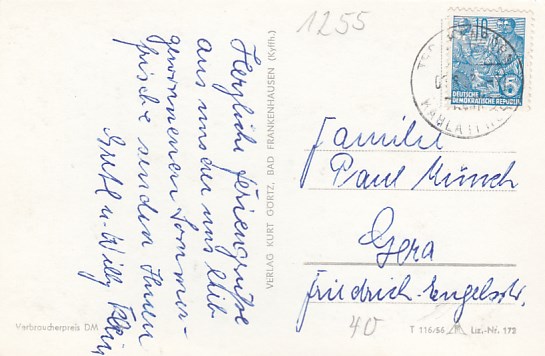 1255
Herzliche Feriengrüße
aus unserer
gewonnenen Sommer-
frische senden Ihnen
u. Willy
VERLAG KURT GÖRTZ, BAD FRANKENHAUSEN (Kyffh.)
Verbraucherpreis DM
10
5
DEUTSCHE
DEMOKRATISCHE REPUBLIK
KAHLA
Familie
Paul Münch
Gera
Friedrich-Engelsstr.
40
T 116/56 Liz.-Nr. 173